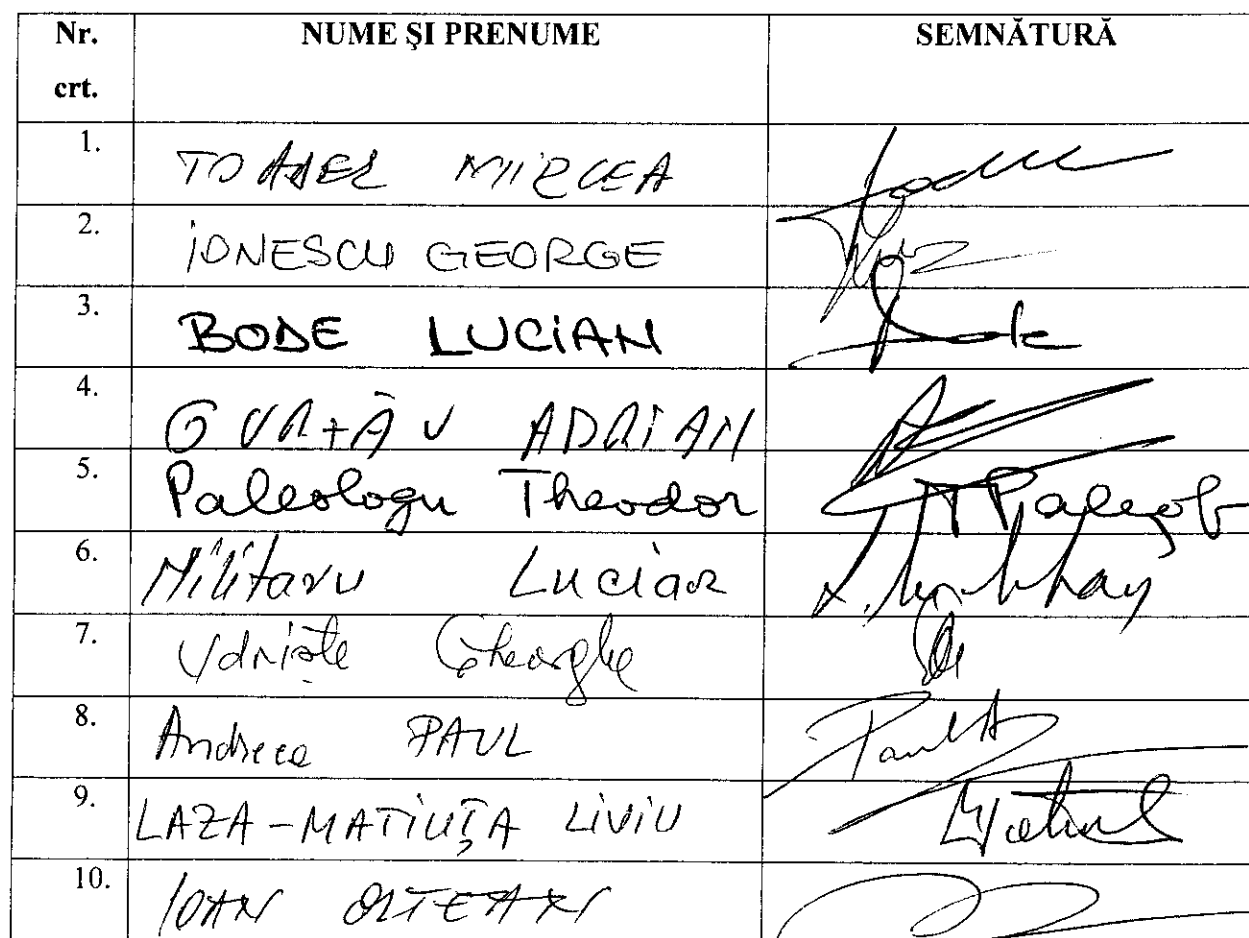 Nr. crt. NUME ŞI PRENUME SEMNĂTURĂ
1. TOADER MIRCEA
2. IONESCU GEORGE
3. BODE LUCIAN
4. GURZĂU ADRIAN
5. Paleologu Theodor TPaleolo
6. Militaru Lucian
7. Udriște Gheorghe
8. Andreea PAUL PaulA
9. LAZA-MATIUȚA LIVIU
10. IOAN OLTEAN